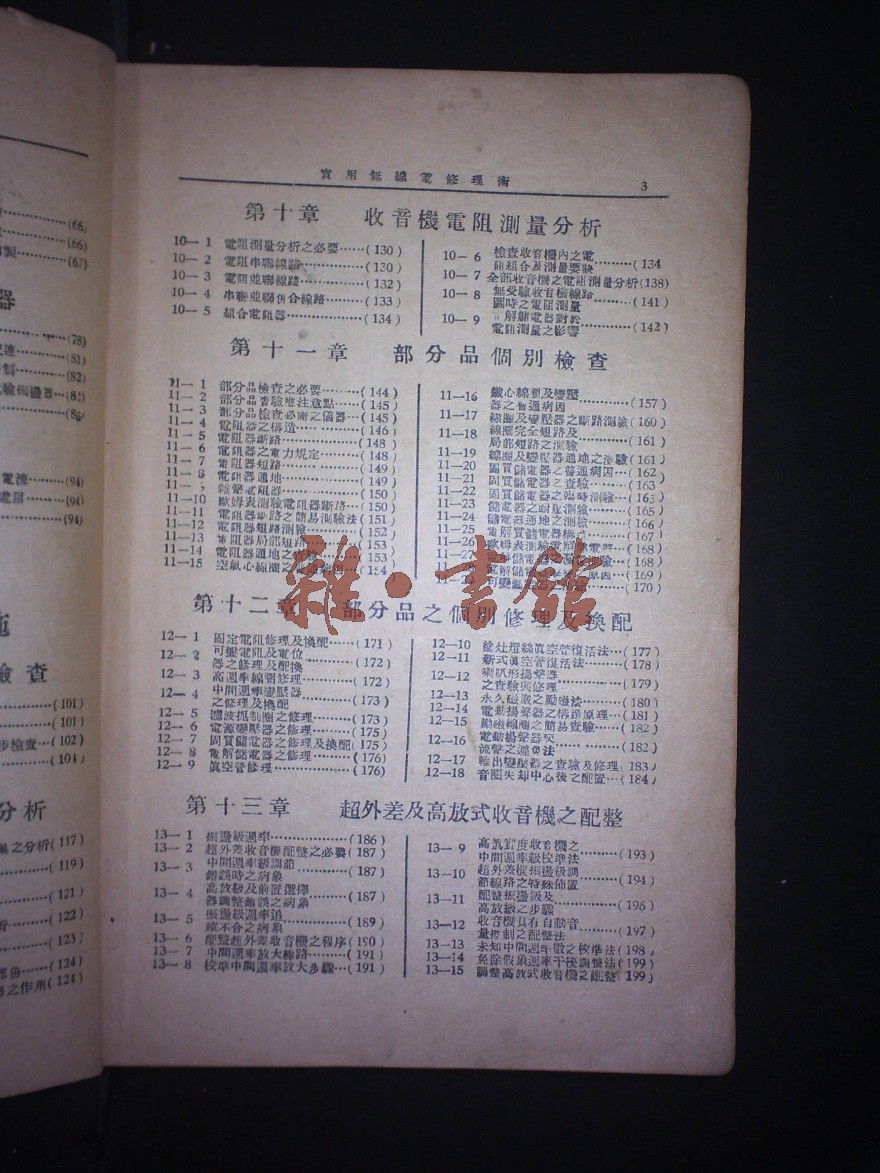 (66)
(66)
(67)
器
(78)
(81)
(82)
(82)
(86)
電流 (94)
電阻 (94)
(94)
檢查
(101)
(101)
步檢查…(102)
(104)
分析
之分析(117)
(119)
(121)
(122)
(123)
部份……(124)
之作用(124)
實用無線電修理術 3
第十章 收音機電阻測量分析
10—1 電阻測量分析之必要……(130)
10—2 電阻串聯線路…………(130)
10—3 電阻並聯線路…………(132)
10—4 串聯並聯混合線路……(133)
10—5 組合電阻器……………(134)
10—6 檢查收音機內之電
阻組合及測量要訣………(134
10—7 全部收音機之電阻測量分析(138)
10—8 無受驗收音機線路
圖時之電阻測量…………(141)
10—9 解儲電器對於
電阻測量之影響…………(142)
第十一章 部分品個別檢查
11—1 部分品檢查之必要………(144)
11—2 部分品查驗地注意點……(145)
11—3 部分品檢查必需之儀器…(145)
11—4 電阻器之構造……………(146)
11—5 電阻器斷路………………(148)
11—6 電阻器之電力規定………(148)
11—7 電阻器短路………………(149)
11—8 電阻器通地………………(149)
雜聲電阻器………………(150)
11—10 歐姆表測驗電阻器斷路…(150)
11—11 電阻器斷路之簡易測驗法(151)
11—12 電阻器短路測驗…………(152)
11—13 電阻器局部短路…………(153)
11—14 電阻器通地之…………(153)
11—15 空氣心線圈之普通病因…(154)
11—16 鐵心線圈及變壓
器之普通病因……………(157)
11—17 線圈及變壓器之斷路測驗(160)
11—18 線圈完全短路及
局部短路之測驗…………(161)
11—19 線圈及變壓器通地之測驗(161)
11—20 固質儲電器之普通病因…(162)
11—21 固質儲電器之查驗………(163)
11—22 固質儲電器之臨時測驗…(165)
11—23 儲電器之耐壓測驗………(165)
11—24 儲電器通地之測驗………(166)
11—25 電解質儲電器構…………(167)
11—26 歐姆表測驗電解儲電器…(168)
(168)
(169)
(170)
第十二章 部分品之個別修理及換配
12—1 固定電阻修理及換配……(171)
12—2 可變電阻及電位
器之修理及配換…………(172)
12—3 高週率線圈修理…………(172)
12—4 中間週率變壓器
之修理及換配……………(173)
12—5 濾波抵制圈之修理………(173)
12—6 電源變壓器之修理………(175)
12—7 固質儲電器之修理及換配(175)
12—8 電解儲電器之修理………(176)
12—9 眞空管修理………………(176)
12—10 釷燈絲眞空管復活法…(177)
12—11 新式眞空管復活法………(178)
12—12 喇叭形揚聲器
之查驗與修理……………(179)
12—13 永久磁鐵之勵磁法………(180)
12—14 電動揚聲器之構造原理…(181)
12—15 勵磁線圈之簡易查驗……(182)
12—16 電動揚聲器交
流聲之避免法……………(182)
12—17 輸出變壓器之查驗及修理(183)
12—18 音圈失却中心後之配置…(184)
第十三章 超外差及高放式收音機之配整
13—1 振邊級週率………………(186)
13—2 超外差收音機配整之必要(187)
13—3 中間週率級調節
錯誤時之病象……………(187)
13—4 高放級及前置選擇
器調整錯誤之病象………(187)
13—5 振邊級週率追
蹤不合之病象……………(189)
13—6 配整超外差收音機之程序(190)
13—7 中間週率放大線路………(191)
13—8 校準中間週率放大步驟…(191)
13—9 高眞實度收音機之
中間週率級校準法………(193)
13—10 超外差機振邊級調
節線路之特殊佈置………(194)
13—11 配整振邊級及
高放級之步驟……………(196)
13—12 收音機具有自動音
量控制之配整法…………(197)
13—13 未知中間週率數之校準法(198)
13—14 免除假像週率干擾調整法(199)
13—15 調整高放式收音機之配整(199)
雜·書館